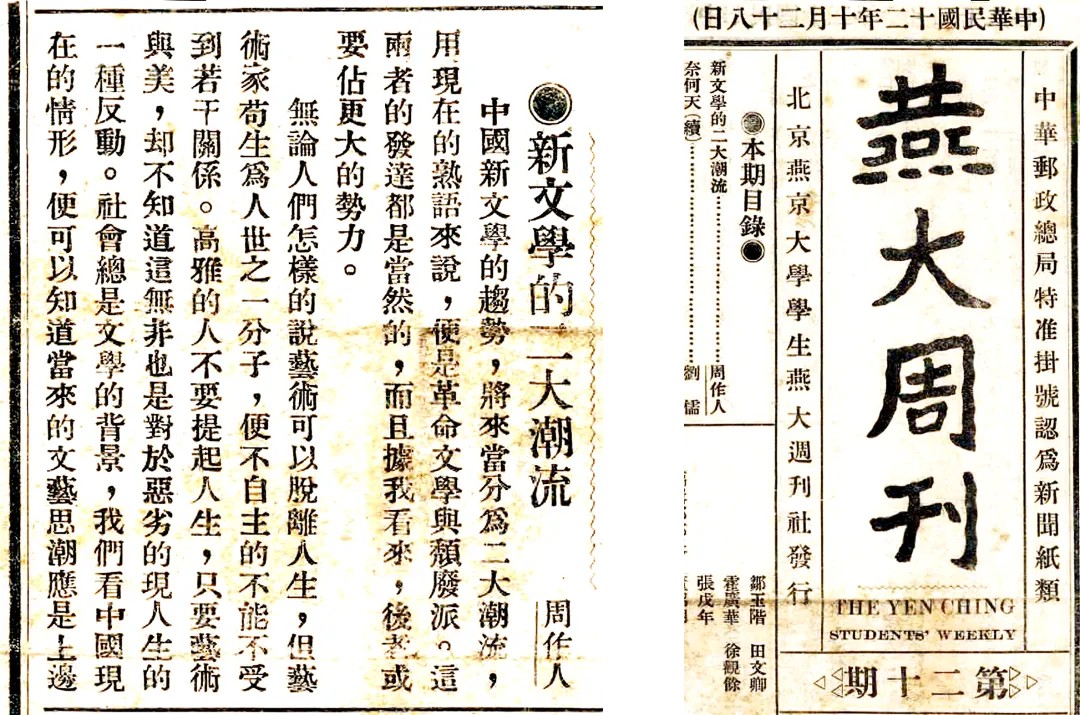 ●新文學的二大潮流 周作人
中國新文學的趨勢，將來當分爲二大潮流，
用現在的熟語來說，便是革命文學與頹廢派。這
兩者的發達都是當然的，而且據我看來，後者或
要佔更大的勢力。
無論人們怎樣的說藝術可以脫離人生，但藝
術家苟生爲人世之一分子，便不自主的不能不受
到若干關係。高雅的人不要提起人生，只要藝術
與美，却不知道這無非也是對於惡劣的現人生的
一種反動。社會總是文學的背景，我們看中國現
在的情形，便可以知道當來的文藝思潮應是上邊
(中華民國十二年十月二十八日)
中華郵政總局特准掛號認爲新聞紙類
燕大周刊
THE YEN CHING
STUDENTS' WEEKLY
第二十期
北京燕京大學學生燕大週刊社發行
●本期目錄●
新文學的二大潮流……周作人
奈何天(續)……劉儒
鄒玉階 田文卿
霍廣華 徐觀餘
張戊年